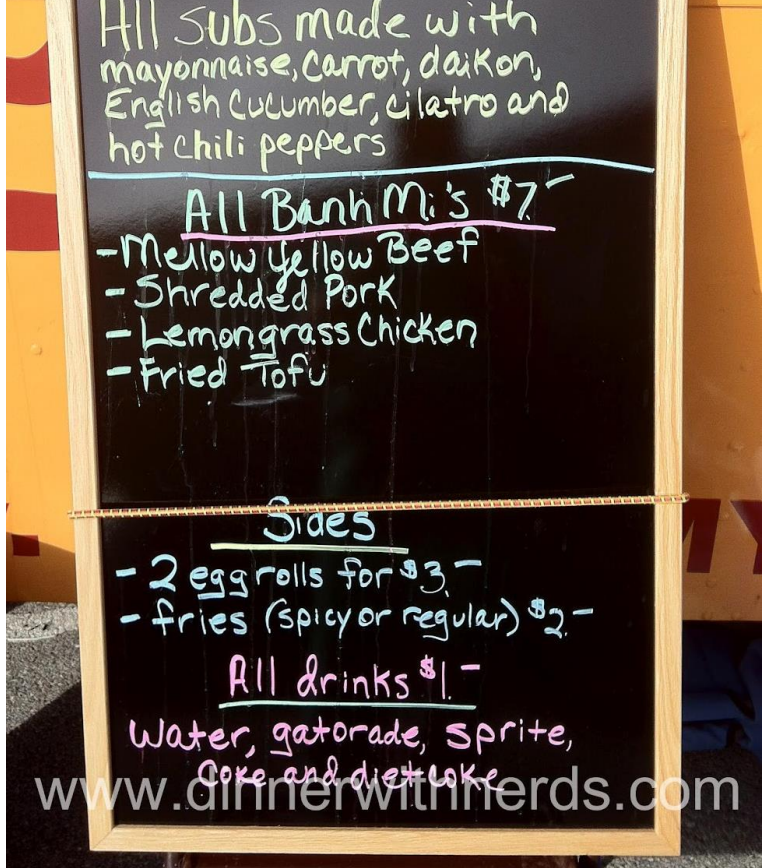 All subs made with
mayonnaise, carrot, daikon,
English Cucumber, cilatro and
hot chili peppers
All Banh Mi's $7.-
- Mellow Yellow Beef
- Shredded Pork
- Lemongrass Chicken
- Fried Tofu
Sides
- 2 egg rolls for $3.-
- fries (spicy or regular) $2.-
All drinks $1.-
Water, gatorade, sprite,
Coke and diet coke
www.dinnerwithnerds.com